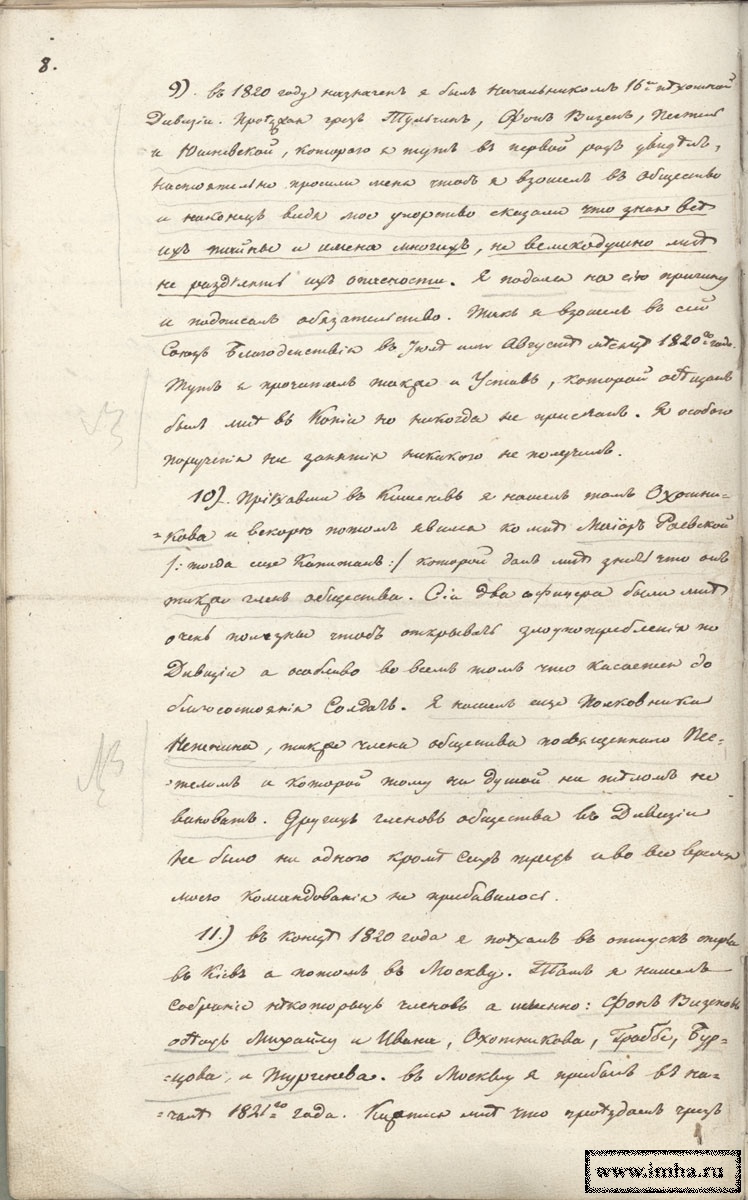 8.
9). въ 1820 году назначенъ я былъ Начальникомъ 16й пѣхотной
Дивизіи. Проѣзжая чрезъ Тульчинъ, Фонъ Визенъ, Пестель
и Юшневской, котораго я тутъ въ первой разъ увидѣлъ,
настоятельно просили меня чтобъ я взошелъ въ общество
и наконецъ видя мое упорство сказали что зная всѣ
ихъ тайны и имена многихъ, не великодушно мнѣ
не раздѣлять ихъ опасности. Я подался на сію причину
и подписалъ обязательство. Такъ я взошелъ въ сей
Союзъ Благоденствія въ Іюлѣ или Августѣ мѣсяцѣ 1820го года.
Тутъ я прочиталъ также и Уставъ, которой обѣщанъ
былъ мнѣ въ Копіи но никогда не присланъ. Я особого
порученія ни занятія никакого не получилъ.
10). Пріѣхавши въ Кишеневъ я нашелъ тамъ Охотни-
=кова и вскорѣ потомъ явился ко мнѣ Маіоръ Раевской
/: тогда еще Капитанъ :/ которой далъ мнѣ знать что онъ
также членъ общества. Сіи два офицера были мнѣ
очень полезны чтобъ открывать злоупотребленія по
Дивизіи а особливо во всемъ томъ что касается до
благосостоянія Солдатъ. Я нашелъ еще Полковника
Непенина, также члена общества посвященнаго Пес-
=телемъ и которой тому ни душой ни тѣломъ не
виноватъ. Другихъ членовъ общества въ Дивизіи
не было ни одного кромѣ сихъ трехъ и во все время
моего командованія не прибавилось.
11.) въ концѣ 1820 года я поѣхалъ въ отпускъ сперва
въ Кіевъ а потомъ въ Москву. Тамъ я нашелъ
собраніе нѣкоторыхъ членовъ а именно: Фонъ Визеновъ
обѣихъ Михайлу и Ивана, Охотникова, Граббе, Бур-
=цова, и Тургенева. въ Москву я прибылъ въ на-
=чалѣ 1821го года. Кажется мнѣ что проѣздомъ чрезъ
www.imha.ru